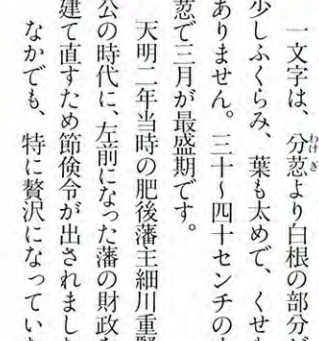 一文字は、分葱より白根の部分が
少しふくらみ、葉も太めで、くせ
ありません。三十〜四十センチの
葱で三月が最盛期です。
天明二年当時の肥後藩主細川重賢
公の時代に、左前になった藩の財政
建て直すため節倹令が出されまし
なかでも、特に贅沢になってい